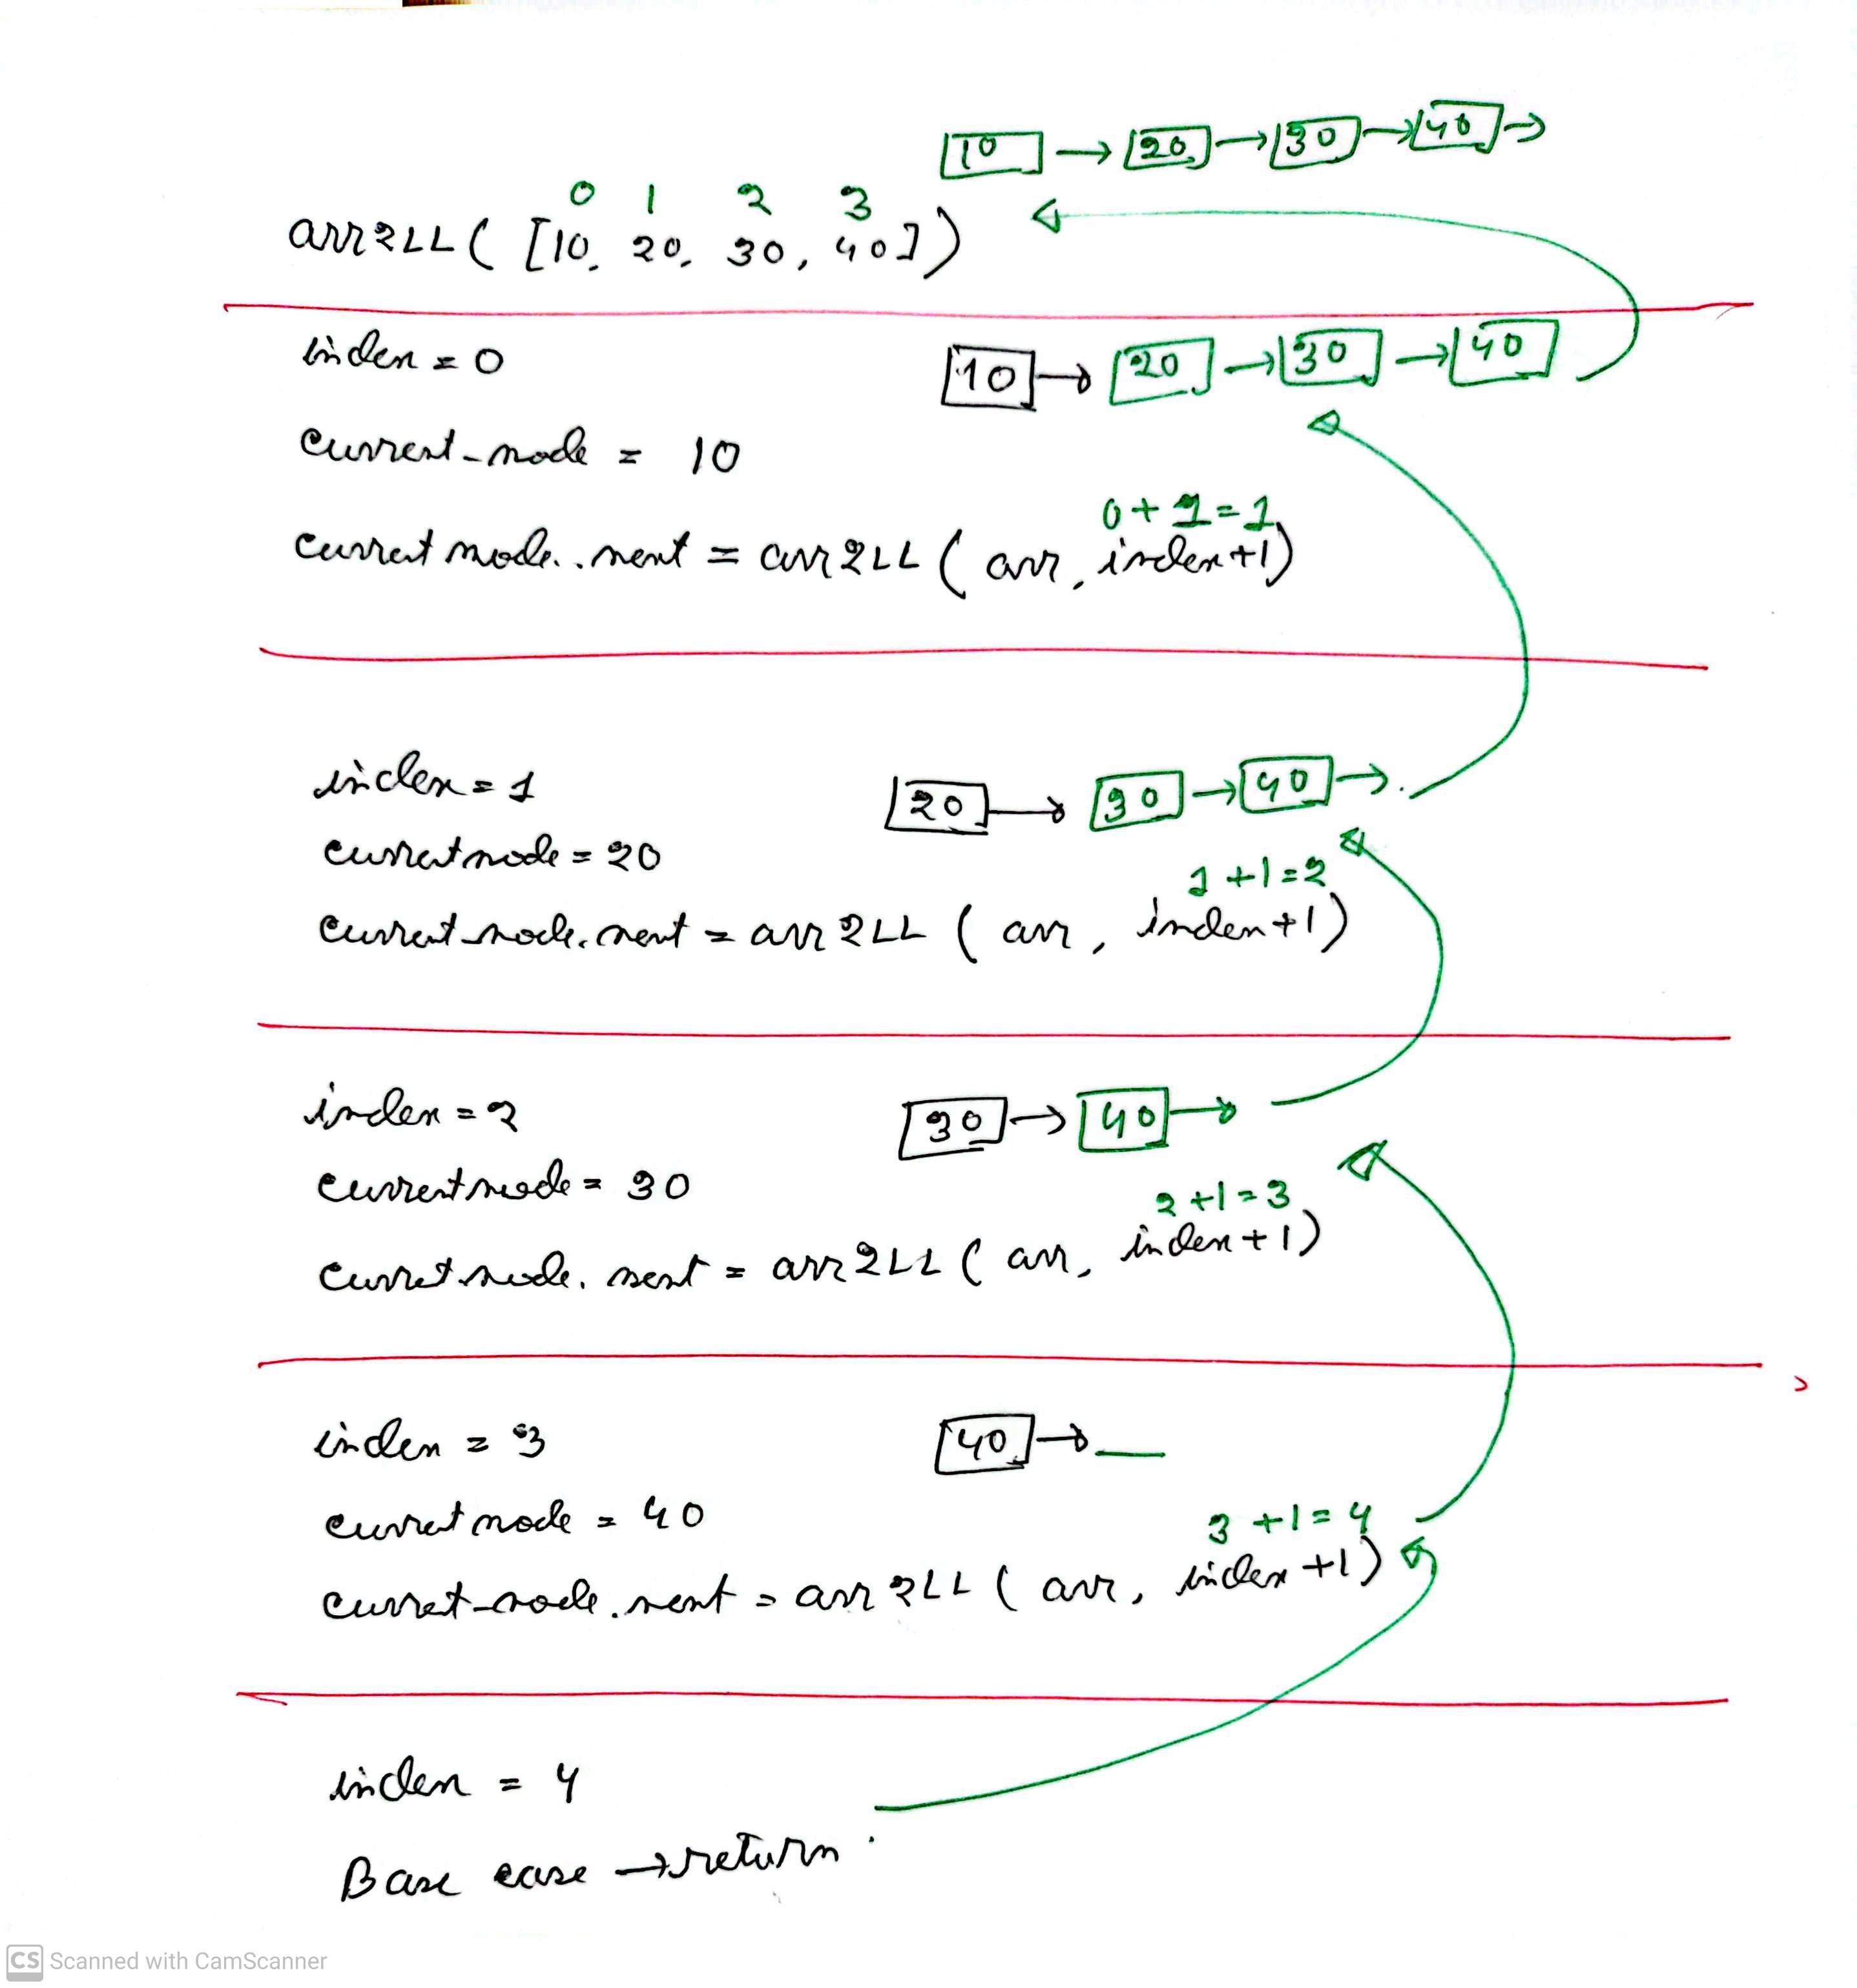 10 → 20 → 30 → 40 →
0 1 2 3
arr2LL ( [10, 20, 30, 40])
index = 0
10 → 20 → 30 → 40
current_node = 10
0 + 1 = 1
current node..next = arr2LL ( arr, index+1)
index = 1
20 → 30 → 40 →.
current node = 20
1 +1 = 2
current_node.next = arr 2LL ( arr, index+1)
index = 2
30 → 40 →
current node = 30
2 +1 = 3
current node. next = arr2LL ( arr, index+1)
index = 3
40 →
current node = 40
3 +1 = 4
current_node.next = arr 2LL ( arr, index +1)
index = 4
Base case → return
CS Scanned with CamScanner